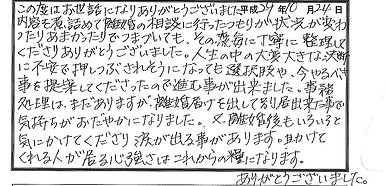 この度はお世話になりありがとうございました。平成29年10月24日
内容を煮詰めて離婚の相談に行ったつもりが状況が変わ
ったりあまかったりでつまづいても、その度毎に丁寧に整理して
くださりありがとうございました。人生の中の大変大きな決断
に不安で押しつぶされそうになっても選択肢や、今やるべき
事を提案してくださったので進む事が出来ました。事務
処理は、まだありますが、離婚届けを出して別居出来た事で
気持ちがおだやかになりました。又、離婚後もいろいろと
気にかけてくださり涙が出る事があります。助けて
くれる人が居る心強さはこれからの糧になります。
ありがとうございました。